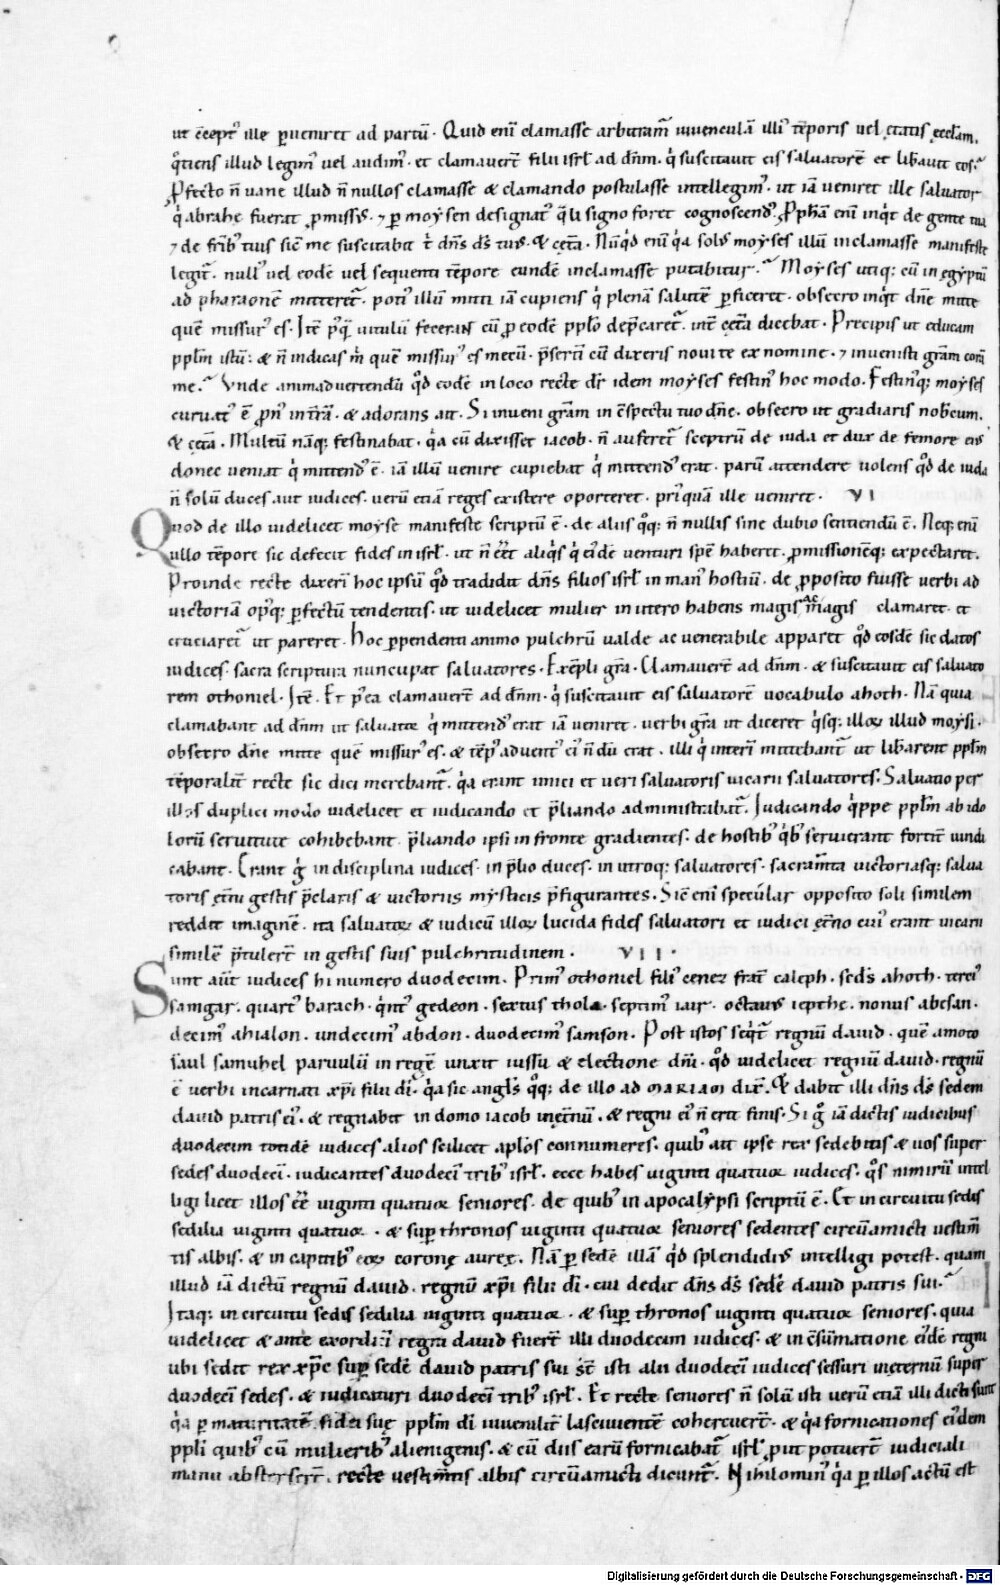 ut c̄cept᷒ ille pueniret ad partū. Quid eni᷒ clamasse arbitram᷒ iuuenculā illi᷒ tēporis uel ętatis ęcclam,
q̊tiens illud legim᷒ uel audim᷒. et clamauer̄t filii isrl̄ ad dn̄m. qͥ suscitauit eis saluatorē et lib̄auit eos.
Pfecto n̄ uane illud n̄ nullos clamasse & clamando postulasse intellegim᷒. ut iā ueniret ille saluator
qͥ abrahe fuerat pmissus. ⁊ p moysen designat᷒ q̄li signo foret cognoscend᷒. Pph̄am eni᷒ inqͥt de gente tua
⁊ de frib᷒ tuis sic̄ me suscitabit t̄ dn̄s ds̄ tuus. & cęta. Nūqͥd eni᷒ qͣa solus moyses illū inclamasse manifeste
legit᷒. null᷒ uel eodē uel sequenti tēpore eundē inclamasse putabitur. Moyses utiq; cū in egyptū
ad pharaonē mitteret᷒. poti᷒ illum mitti iā cupiens qͥ plenā salutē pficeret. obsecro inqͥt dn̄e mitte
quē missur᷒ es. Itē p᷒qͣ uitulū fecerant cū p eodē pplo dep̄caret᷒. int̄ cęta dicebat. Precipis ut educam
pplm istū; & n̄ indicas m̄ quē missur᷒ es mecū. p̄serti᷒ cū dixeris noui te ex nomine. ⁊ inuenisti gr̄am corā
me. Unde animaduertendū qd̊ eodē in loco recte dr̄ idem moyses festin᷒ hoc modo. Festin᷒q; moyses
curuat᷒ ē pn᷒ in tr̄a. & adorans ait. Si inueni gr̄am in c̄spectu tuo dn̄e. obsecro ut gradiaris nobcum.
& cęta. Multū nāq; festinabat. qͣa cū dixisset iacob. n̄ auferet᷒ sceptrū de iuda et dux de femore eius
donec ueniat qͥ mittend᷒ ē. iā illū uenire cupiebat qͥ mittend᷒ erat. parū attendere uolens qd̊ de iuda
n̄ solū duces aut iudices. uerū etiā reges existere oporteret. pͥusquā ille ueniret. VI
Quod de illo uidelicet moyse manifeste scriptū ē. de aliis q̊q; n̄ nullis sine dubio sentiendū ē. Neq; eni᷒
ullo tēpore sic defecit fides in isrl̄. ut n̄ ēet aliqͥs qͥ ei᷒dē uenturi spē haberet. pmissionēq; expectaret.
Proinde recte dixeri᷒ hoc ipsū qd̊ tradidit dn̄s filios isrl̄ in man᷒ hostiū. de pposito fuisse uerbi ad
uictoriā op᷒q; pfectū tendentis. ut uidelicet mulier in utero habens magis ac magis clamaret et
cruciaret᷒ ut pareret. Hoc ppendenti animo pulchrū ualde ac uenerabile apparet qd̊ eosdē sic datos
iudices. sacra scriptura nuncupat saluatores. Exēpli gr̄a. Clamauer̄t ad dn̄m. & suscitauit eis saluato
rem othoniel. Itē. Et p᷒ea clamauer̄t ad dn̄m. qͥ suscitauit eis saluatorē uocabulo ahoth. Nā quia
clamabant ad dn̄m ut saluator qͥ mittend᷒ erat iā ueniret. uerbi gr̄a ut diceret qͥsq; illoꝝ illud moysi.
obsecro dn̄e mitte quē missur᷒ es. & tēp᷒ aduent᷒ ei᷒ n̄dū erat. illi qͥ interi᷒ mittebant᷒ ut lib̄arent pplm
tēporalit̄ recte sic dici merebant᷒. qͣa erant unici et ueri saluatoris uicarii saluatores. Saluatio per
illos duplici modo uidelicet et iudicando et p̄liando administrabat᷒. Iudicando qͥppe pplm ab ido
lorū seruitute cohibebant. p̄liando ipsi in fronte gradientes. de hostib᷒ qͥb᷒ seruierant fortit̄ uindi
cabant. Erant g̊ in disciplina iudices. in p̄lio duces. in utroq; saluatores. sacram̄ta uictoriasq; salua
toris et̄ni gestis p̄claris & uictoriis mysticis p̄figurantes. Sic̄ eni᷒ speculū opposito soli similem
reddit imaginē. ita saluatoꝝ & iudicū illoꝝ lucida fides saluatori et iudici ęt̄no cui᷒ erant uicarii
similē p̄tuler̄t in gestis suis pulchritudinem. VII.
Sunt aūt iudices hi numero duodecim. Prim᷒ othoniel fili᷒ cenez frat̄ caleph. seds̄ ahoth. terci᷒
samgar. quart᷒ barach. qͥnt᷒ gedeon. sextus thola. septim᷒ iair. octauus iepthe. nonus abesan.
decim᷒ ahialon. undecim᷒ abdon. duodecim᷒ samson. Post istos seqͥt᷒ regnū dauid. quē amoto
saul samuhel paruulū in regē unxit iussu & electione dn̄i. qd̊ uidelicet regnū dauid. regnū
ē uerbi incarnati xp̄i filii di᷒. qͣa sic angl̄s q̊q; de illo ad MARIAM dix̄. Et dabit illi dn̄s ds̄ sedem
dauid patris ei᷒. & regnabit in domo iacob inęt̄nū. & regni ei᷒ n̄ erit finis. Si g̊ iā dictis iudicibus
duodecim totidē iudices alios scilicet apl̄os connumeres. quib᷒ ait ipse rex sedebitis & uos super
sedes duodeci᷒. iudicantes duodeci᷒ trib᷒ isrl̄. ecce habes uiginti quatuor iudices. q̊s nimirū intel
ligi licet illos ēe uiginti quatuor seniores. de quib᷒ in apocalypsi scriptū ē. Et in circuitu sedis
sedilia uiginti quatuor. & sup thronos uiginti quatuor seniores sedentes circūamicti uestim̄
tis albis. & in capitib᷒ eoꝝ coronę aureę. Nā p sedē illā qd̊ splendidi᷒ intelligi potest. quam
illud iā dictū regnū dauid. regnū xp̄i filii di᷒. cui dedit dn̄s ds̄ sedē dauid patris sui.
Itaq; in circuitu sedis sedilia uiginti quatuor. & sup thronos uiginti quatuor seniores. quia
uidelicet & ante exordiū regni dauid fuer̄t illi duodecim iudices. & in c̄sūmatione ei᷒dē regni
ubi sedit rex xp̄c sup sedē dauid patris sui st̄ isti alii duodeci᷒ iudices sessuri inęternū super
duodeci᷒ sedes. & iudicaturi duodeci᷒ trib᷒ isrl̄. Et recte seniores n̄ solū isti uerū etiā illi dicti sunt
qͣa p maturitatē fidei suę pplm di᷒ iuuenilit̄ lasciuientē cohercuer̄t. & qͣa fornicationes ei᷒dem
ppli quib᷒ cū mulierib᷒ alienigenis. & cū diis earū fornicabat᷒ isrl̄ put potuer̄t iudiciali
manu abstersert̄. recte uestim̄tis albis circūamicti dicunt᷒. Nihilomin᷒ qͣa p illos actū est
Digitalisierung gefördert durch die Deutsche Forschungsgemeinschaft - DFG